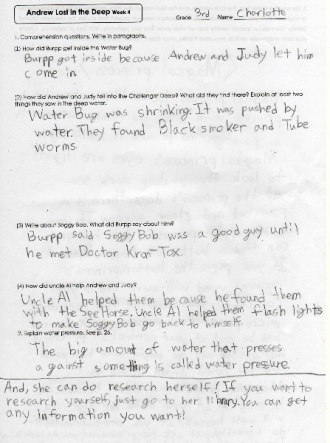 Andrew Lost in the Deep Week 4
Grade 3rd Name Charlotte
1. Comprehension questions. Write in paragraphs.
(1) How did Burpp get inside the Water Bug?
Burpp got inside because Andrew and Judy let him
come in
(2) How did Andrew and Judy fall into the Challenger Deep? What did they find there? Explain at least two
things they saw in the deep water.
Water Bug was shrinking. It was pushed by
water. They found Black smoker and Tube
worms.
(3) Write about Soggy Bob. What did Burpp say about him?
Burpp said Soggy Bob was a good guy until
he met Doctor Kron-Tox.
(4) How did uncle Al help Andrew and Judy?
Uncle Al helped them because he found them
with the See Horse. Uncle Al helped them flash lights
to make Soggy Bob go back to himself.
2. Explain water pressure. See p. 26.
The big amount of water that presses
a gainst something is called water pressure.
And, she can do research herself! If you want to
research yourself, just go to her library. You can get
any information you want!